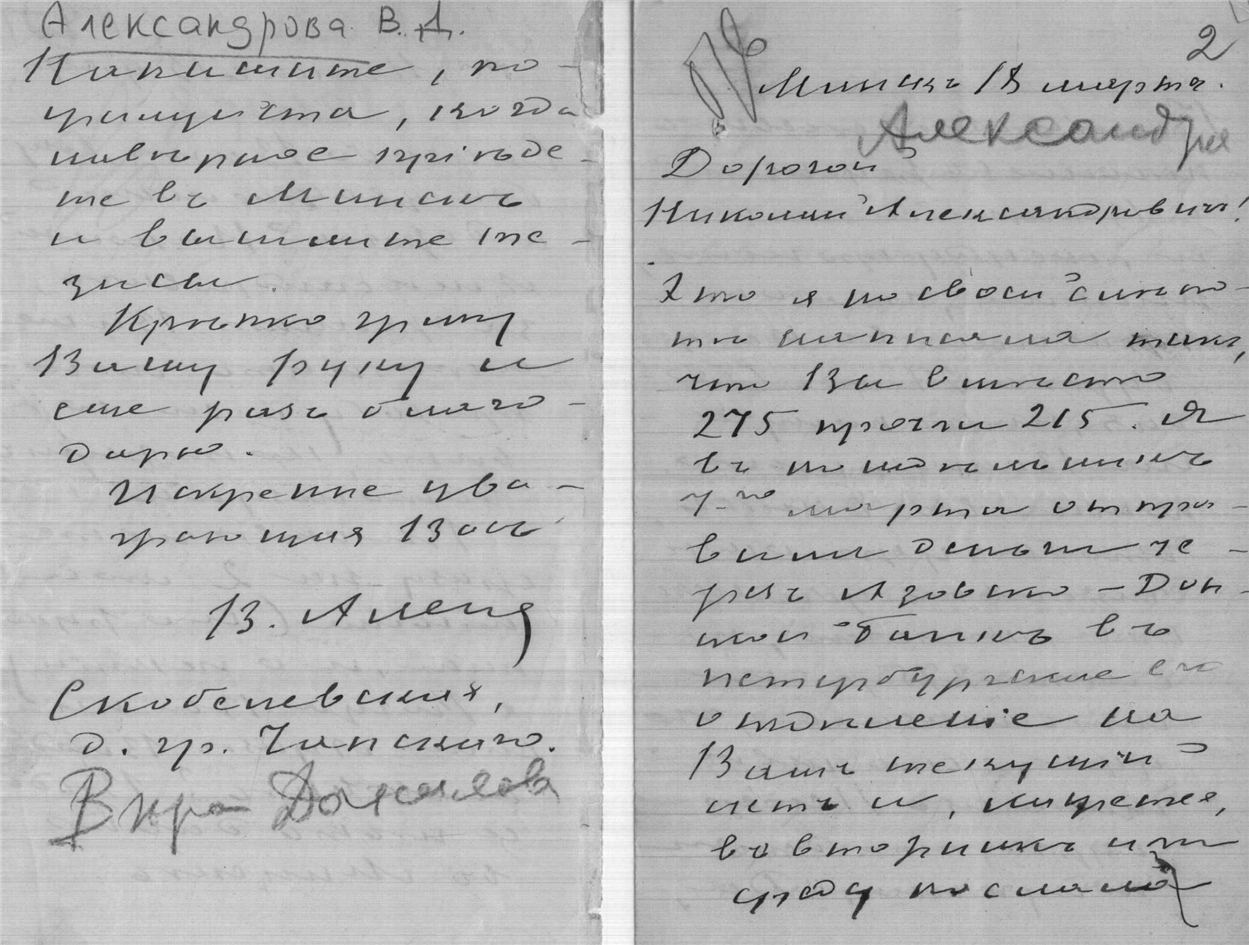 Александрова В. Д.
Напишите, по-
жалуйста, когда
навѣрное пріѣде-
те въ Минскъ
и вышлите те-
зисы.
Крѣпко жму
Вашу руку и
еще разъ благо-
дарю.
Искренне ува-
жающая Васъ
В. Алекс
Скобелевская,
д. гр. Чапскаго.
Вѣра
2
Минскъ 18 марта.
Дорогой
Николай Александровичъ!
Это я по своей слѣпо-
тѣ написала такъ,
что Вы вмѣсто
275 прочли 215. Я
въ понедѣльникъ
7-го марта отпра-
вила деньги че-
резъ Азовско-Дон-
ской банкъ въ
петербургское его
отдѣленіе на
Вашъ текущій
счетъ и, кажется,
во вторникъ или
среду послала